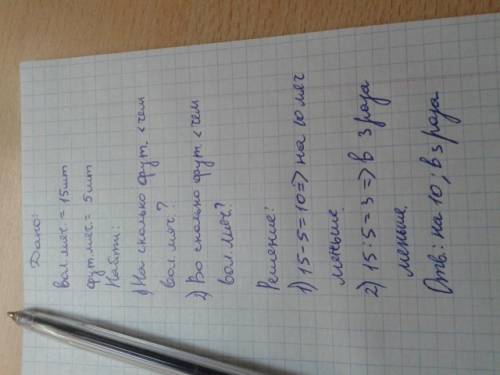 Дано:
вол.мяч. = 15 шт
фут.мяч. = 5 шт
Найти:
1) На сколько фут. < чем
вол. мяч?
2) Во сколько фут. < чем
вол. мяч?
Решение:
1) 15-5=10 => на 10 мяч
меньше.
2) 15:5=3 => в 3 раза
меньше.
Отв: на 10; в 3 раза.